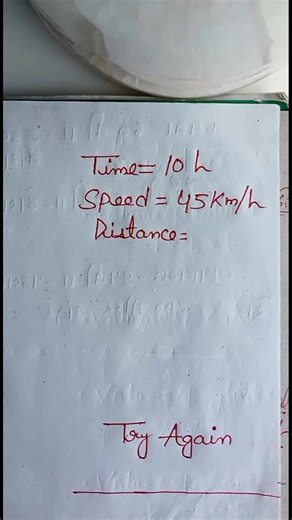 Time= 10 h
Speed = 45 Km/h
Distance=
Try Again